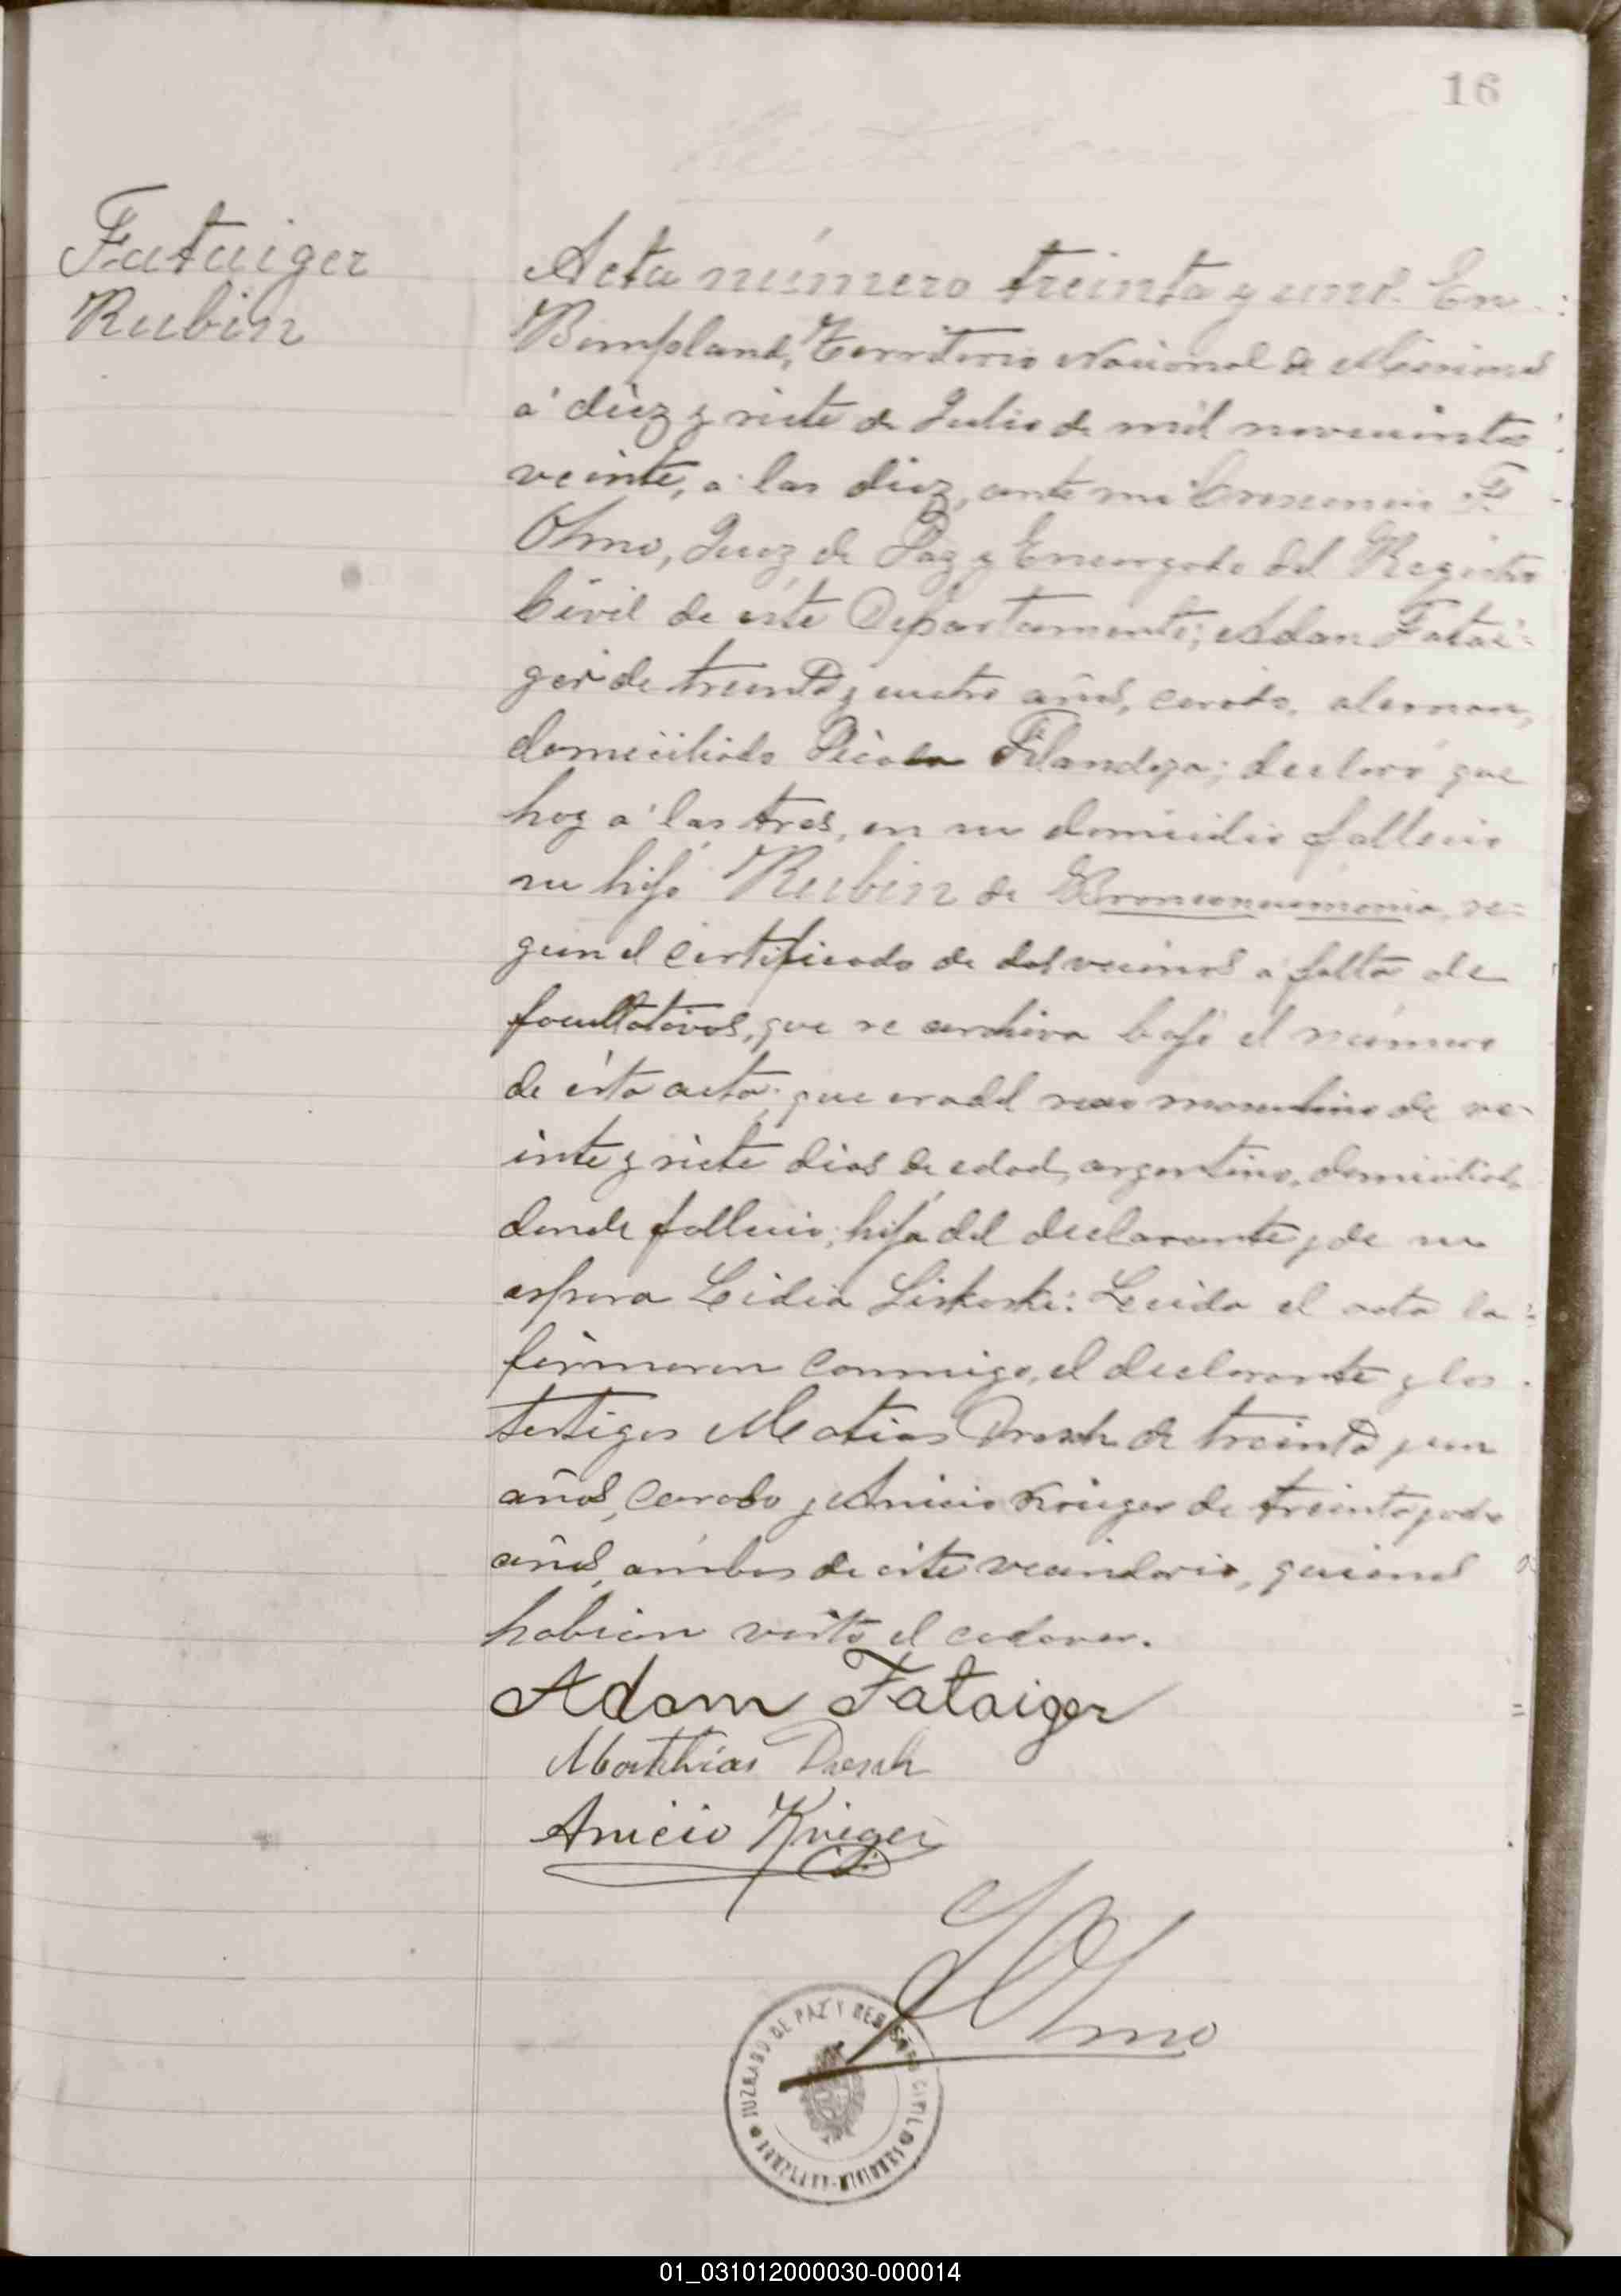 16
Fataiger
Rubin
Acta número treinta y uno. En
Bompland, Territorio Nacional de Misiones
a' diez y siete de Julio de mil novecientos
veinte, a las diez, ante mi Crescencio F.
Olmo, Juez de Paz y Encargado del Registro
Civil de este Departamento; Adan Fatai-
ger de treinta y cuatro años, casado, aleman,
domiciliado Picada Filandeza; declaró que
hoy a' las tres, en su domicilio fallecio
su hijo Rubin de Bronconeumonia, se-
gun el certificado de dos vecinos a falta de
facultativos, que se archiva bajo el número
de ésta acta; que era del sexo masculino de ve-
inte y siete dias de edad, argentino, domiciliado
donde fallecio; hijo del declarante y de su
esposa Lidia Liskoski: Leida el acta la
firmaron conmigo, el declarante y los
testigos Matias Dresch de treinta y un
años, casado y Anicio Krieger de treinta y dos
años, ambos de este vecindario, quienes
habian visto el cadaver.
Adam Fataiger
Matthias Dresch
Anicio Krieger
Olmo
JUZGADO DE PAZ Y REGISTRO CIVIL
BOMPLAND-MISIONES
01_031012000030-000014